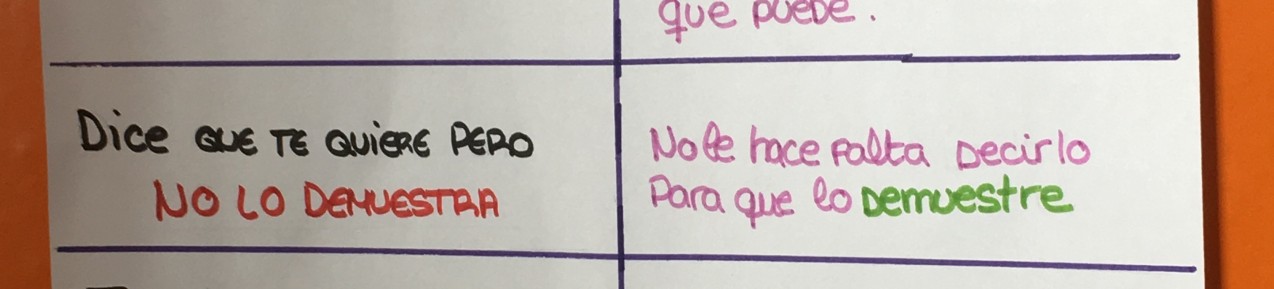 que puede.
Dice QUE TE QUIERE PERO
NO LO DEMUESTRA
No le hace falta Decirlo
Para que lo Demuestre